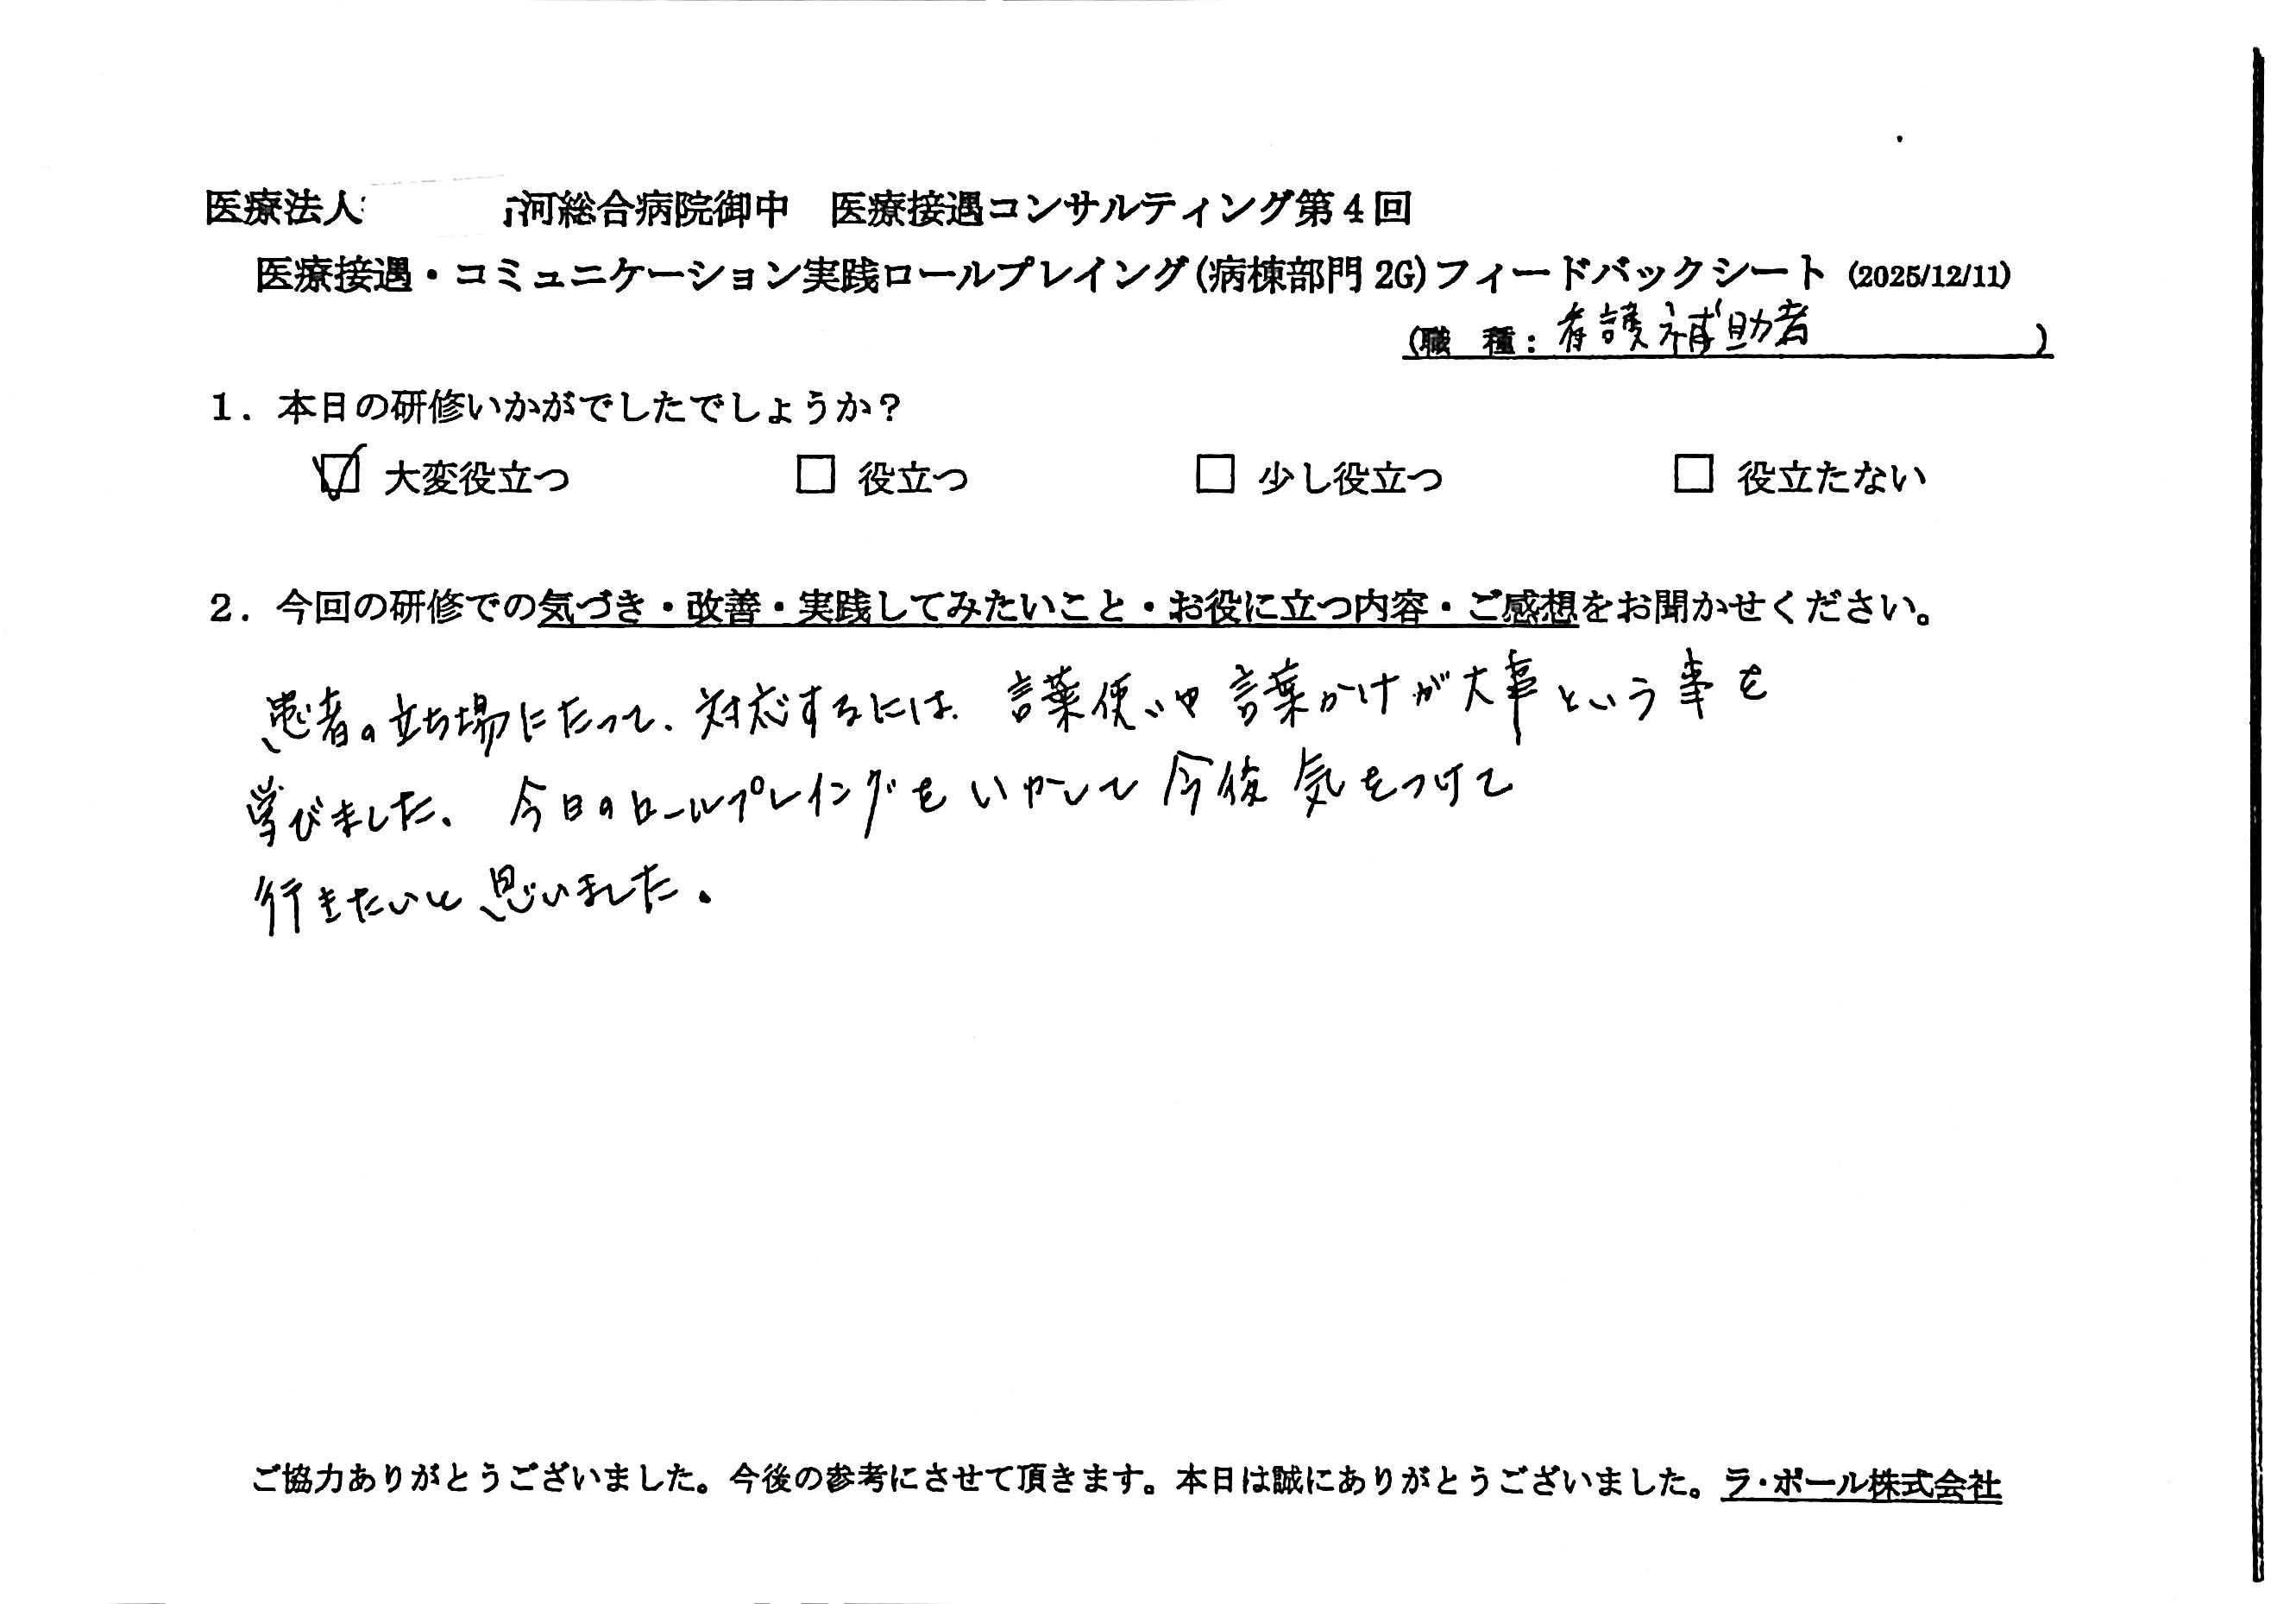 医療法人 河総合病院御中　医療接遇コンサルティング第4回
医療接遇・コミュニケーション実践ロールプレイング(病棟部門 2G)フィードバックシート (2025/12/11)
(職　種：看護補助者　)
1. 本日の研修いかがでしたでしょうか？
☑ 大変役立つ　□ 役立つ　□ 少し役立つ　□ 役立たない
2. 今回の研修での気づき・改善・実践してみたいこと・お役に立つ内容・ご感想をお聞かせください。
患者の立ち場にたって、対応するには、言葉使いや言葉かけが大事という事を
学びました、今日のロールプレイングをいかして今後気をつけて
行きたいと思いました。
ご協力ありがとうございました。今後の参考にさせて頂きます。本日は誠にありがとうございました。ラ・ポール株式会社